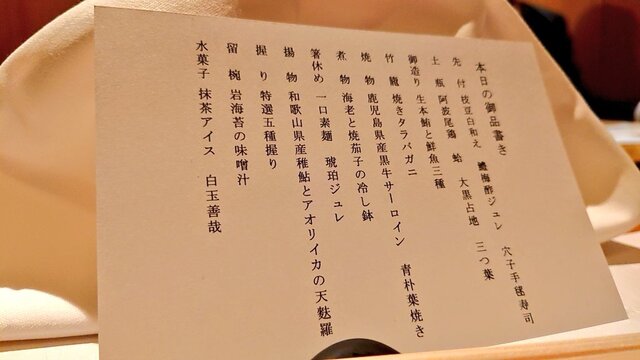 本日の御品書き
先 付 枝豆白和え 鱧梅酢ジュレ 穴子手毬寿司
土 瓶 阿波尾鶏 蛤 大黒占地 三つ葉
御造り 生本鮪と鮮魚三種
竹 籠 焼きタラバガニ
焼 物 鹿児島県産黒牛サーロイン 青朴葉焼き
煮 物 海老と焼茄子の冷し鉢
箸休め 一口素麺 琥珀ジュレ
揚 物 和歌山県産稚鮎とアオリイカの天麩羅
握 り 特選五種握り
留 椀 岩海苔の味噌汁
水菓子 抹茶アイス 白玉善哉